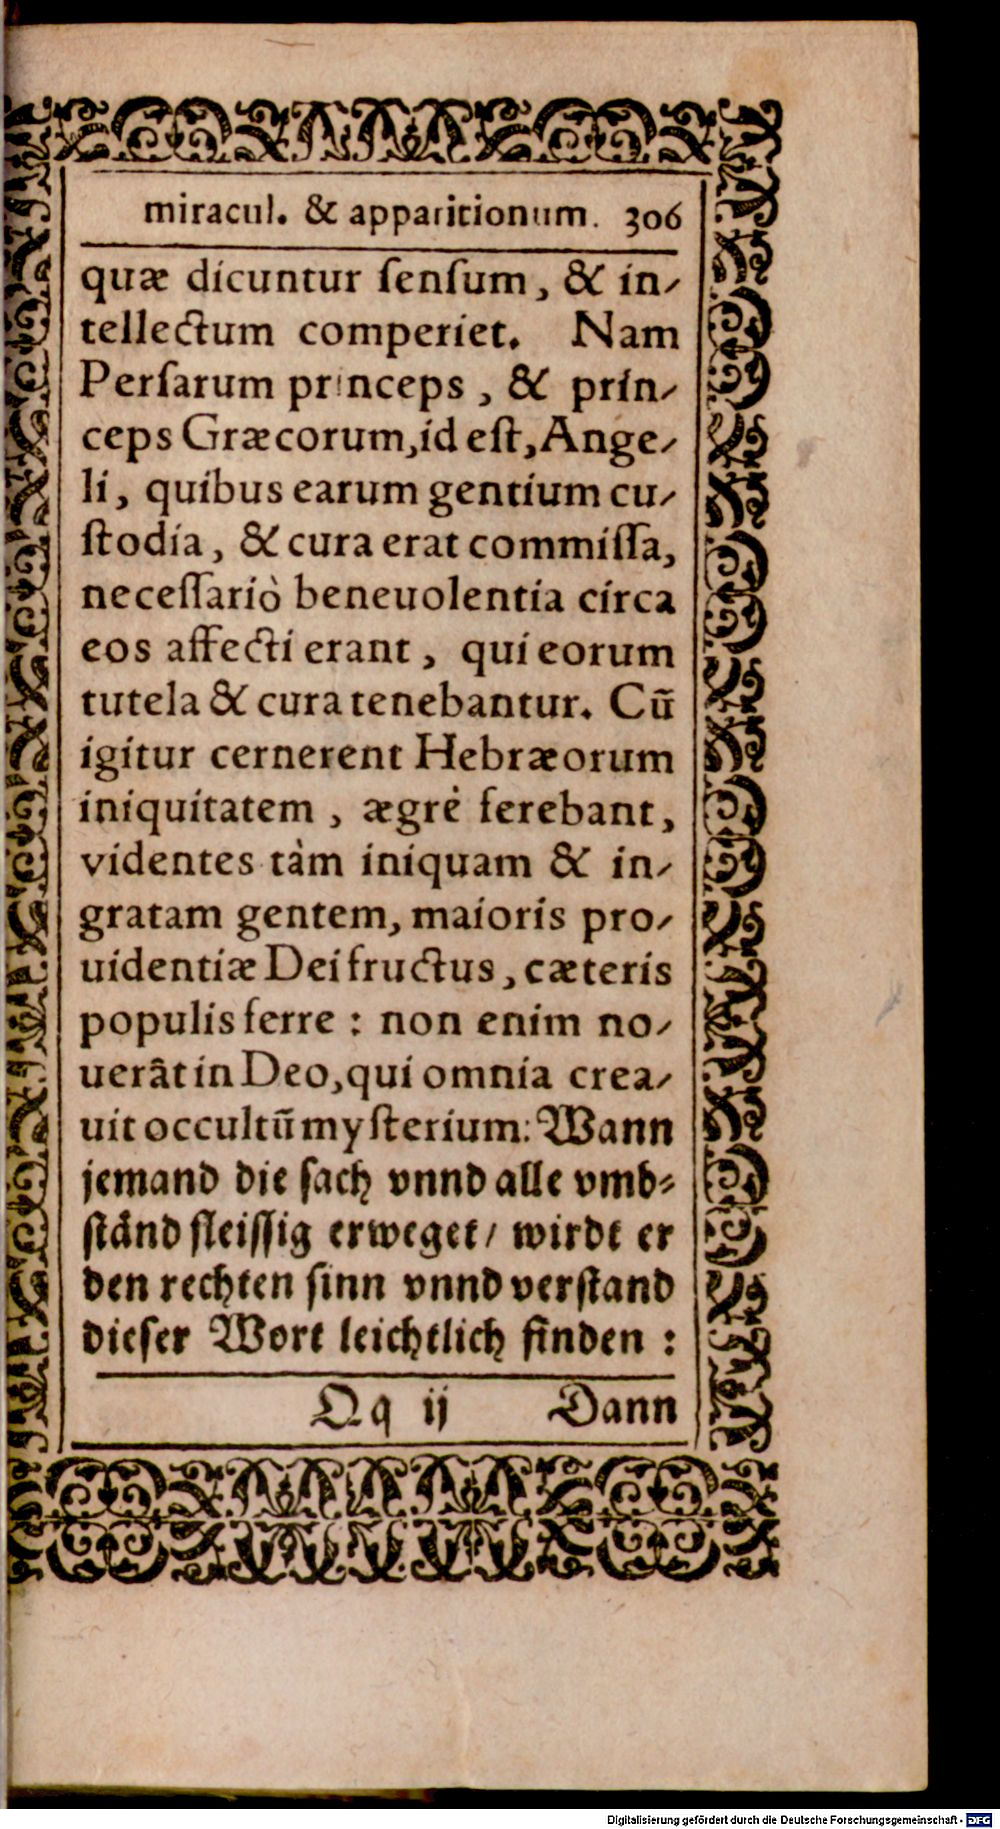 miracul. & apparitionum. 306
quæ dicuntur ſenſum, & in⸗
tellectum comperiet. Nam
Perſarum princeps, & prin⸗
ceps Græcorum, id eſt, Ange⸗
li, quibus earum gentium cu⸗
ſtodia, & cura erat commiſſa,
neceſſariò beneuolentia circa
eos affecti erant, qui eorum
tutela & cura tenebantur. Cũ
igitur cernerent Hebræorum
iniquitatem, ægrè ferebant,
videntes tàm iniquam & in⸗
gratam gentem, maioris pro⸗
uidentiæ Dei fructus, cæteris
populis ferre : non enim no⸗
uerât in Deo, qui omnia crea⸗
uit occultũ myſterium: Wann
jemand die ſach vnnd alle vmb⸗
ſtänd fleiſſig erweget/ wirdt er
den rechten ſinn vnnd verſtand
dieſer Wort leichtlich finden :
Qq ij Dann
Digitalisierung gefördert durch die Deutsche Forschungsgemeinschaft - DFG